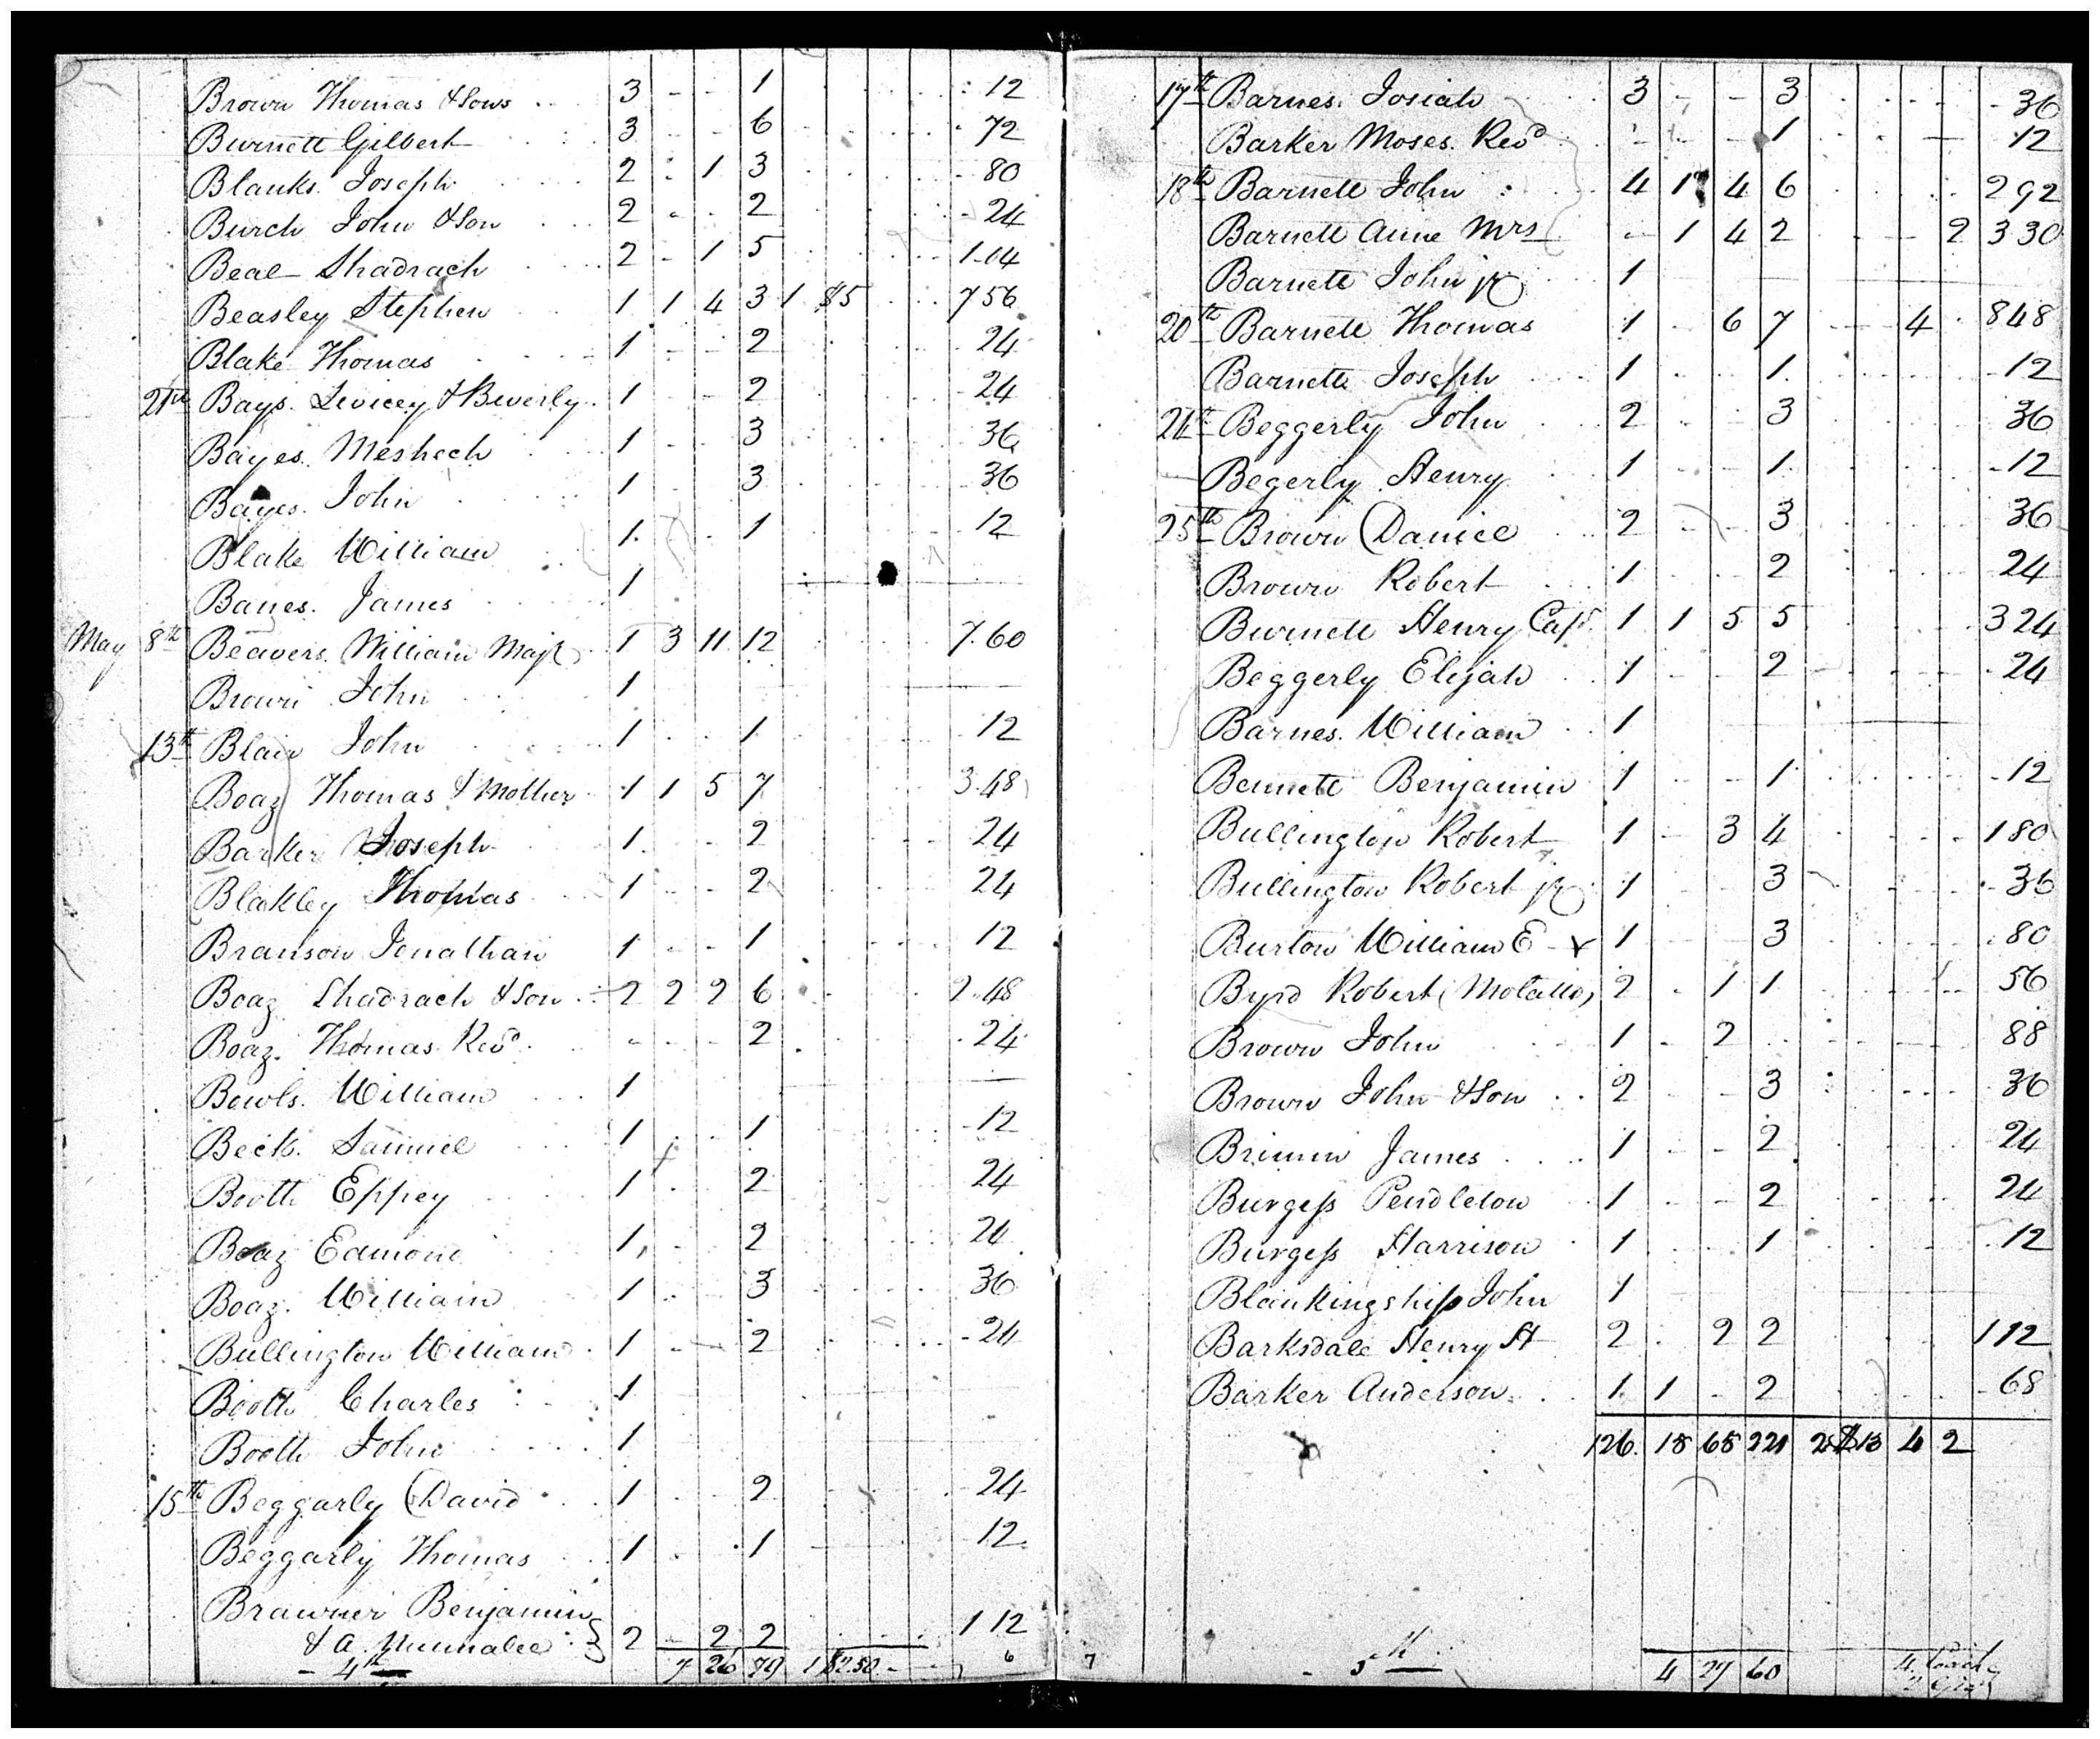 Brown Thomas & Sons 3 - - 1 12
Burnett Gilbert 3 - - 6 72
Blanks Joseph 2 - 1 3 80
Burch John & Son 2 - - 2 24
Beal Shadrach 2 - 1 5 1.04
Beasley Stephen 1 1 4 3 1 $85 7 56
Blake Thomas 1 - - 2 24
21st Bays Levicey & Beverly 1 - - 2 24
Bayes Meshech 1 - - 3 36
Bayes John 1 - 3 36
Blake William 1 - 1 12
Banes James 1
May 8th Beavers William Majr 1 3 11 12 7.60
Brown John 1
13th Blair John 1 - - 1 12
Boaz Thomas & Mother 1 1 5 7 3.48
Barker Joseph 1 - - 2 24
Blakley Thomas 1 - - 2 24
Branson Jonathan 1 - - 1 12
Boaz Shadrach & Son 2 2 2 6 2.48
Boaz Thomas Revd - - - 2 24
Bowls William 1
Beck Samuel 1 - - 1 12
Booth Eppey 1 - - 2 24
Boaz Edmond 1 - - 2 24
Boaz William 1 - - 3 36
Bullington William 1 - - 2 24
Booth Charles 1
Booth John 1
15th Beggarly David 1 - - 2 24
Beggarly Thomas 1 - - 1 12
Brawner Benjamin
& A. 2 - 2 2 1 12
4th 7 26 79 1 $2.50 6
17th Barnes Josiah 3 - - 3 36
Barker Moses Revd - - - 1 12
18th Barnett John 4 1 4 6 2 92
Barnett Anne Mrs - 1 4 2 2 3 30
Barnett John jr 1
20th Barnett Thomas 1 - 6 7 4 848
Barnett Joseph 1 - - 1 12
21st Beggerly John 2 - - 3 36
Begerly Henry 1 - - 1 12
25th Brown Daniel 2 - - 3 36
Brown Robert 1 - - 2 24
Burnett Henry Capt 1 1 5 5 3 24
Beggerly Elijah 1 - - 2 24
Barnes William 1
Bennett Benjamin 1 - - 1 12
Bullington Robert 1 - 3 4 1 80
Bullington Robert jr 1 - - 3 36
Burton William E 1 - - 3 80
Byrd Robert (Molatto) 2 - 1 1 56
Brown John 1 - 2 88
Brown John & Son 2 - - 3 36
Brimm James 1 - - 2 24
Burgess Pendleton 1 - - 2 24
Burgess Harrison 1 - - 1 12
Blankingship John 1
Barksdale Henry H 2 - 2 2 1 12
Barker Anderson 1 1 - 2 68
126 18 68 221 2 4 2
7 5th 4 27 60 4
2